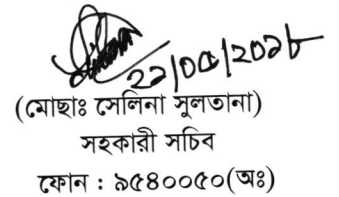 ২২/০৫/২০১৮
(মোছাঃ সেলিনা সুলতানা)
সহকারী সচিব
ফোন : ৯৫৪০০৫০(অঃ)